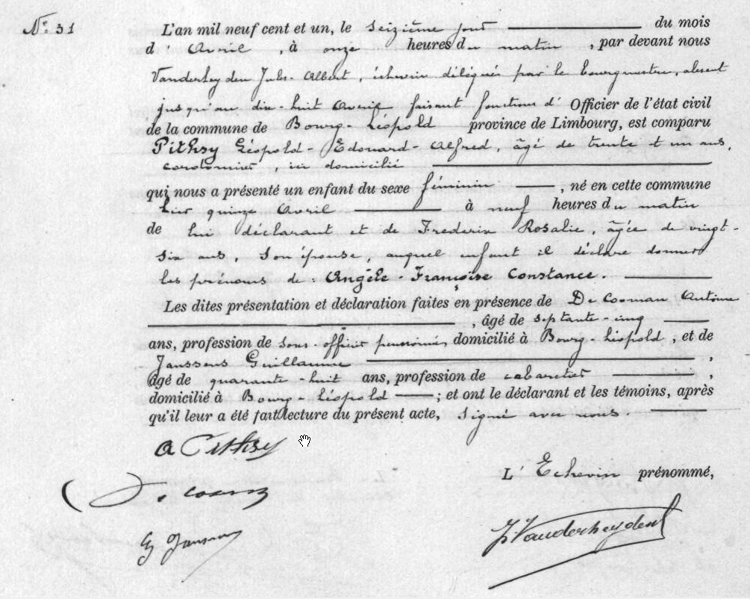 N° 31
L'an mil neuf cent et un, le seizième jour du mois
d'Avril, à onze heures du matin, par devant nous
Vanderheyden Jules-Albert, échevin délégué par le bourgmestre, absent
jusqu'au dix-huit Avril faisant fonction d'Officier de l'état civil
de la commune de Bourg-Léopold province de Limbourg, est comparu
Pithsy Léopold-Edouard-Alfred, âgé de trente et un ans,
cordonnier, ici domicilié
qui nous a présenté un enfant du sexe féminin, né en cette commune
hier quinze Avril à neuf heures du matin
de lui déclarant et de Frederix Rosalie, âgée de vingt-
six ans, son épouse, auquel enfant il déclare donner
les prénoms de Angèle-Françoise Constance.
Les dites présentation et déclaration faites en présence de De Cooman Antoine
, âgé de septante-cinq
ans, profession de sous-officier pensionné domicilié à Bourg-Léopold, et de
Janssens Guillaume,
âgé de quarante-huit ans, profession de cabaretier,
domicilié à Bourg-Léopold; et ont le déclarant et les témoins, après
qu'il leur a été fait lecture du présent acte, signé avec nous.
A Pithsy
L'Echevin prénommé,
G Janssens
J Vanderheyden